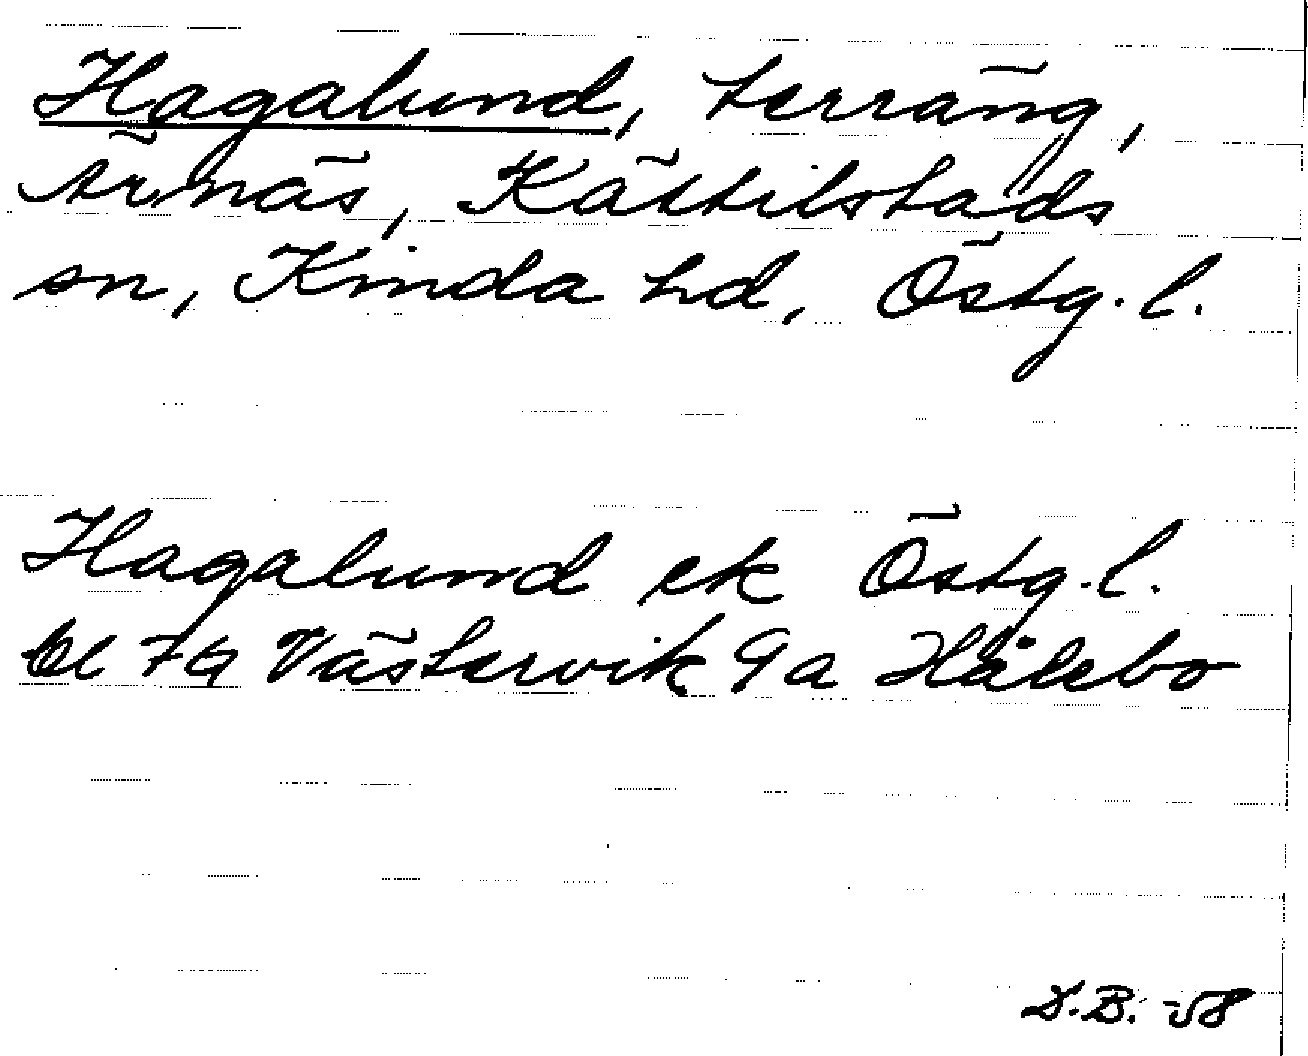 Hagalund, terräng,
Ärnäs, Kättilstads
sn, Kinda hd, Östg. l.
Hagalund ek Östg. l.
bl 7G Västervik 9a Hålebo
D.B. -58